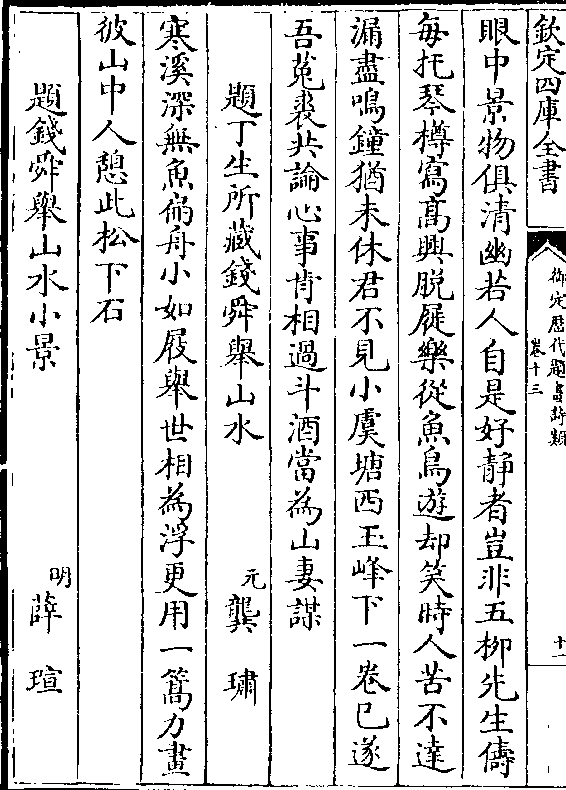 欽定四庫全書
御定歴代題畫詩類
卷十三
十一
眼中景物俱清幽若人自是好静者豈非五柳先生儔
每托琴樽寫髙興脱屣樂從魚鳥遊却笑時人苦不達
漏盡鳴鐘猶未休君不見小虞塘西玉峰下一卷已遂
吾菟裘共論心事肯相過斗酒當為山妻謀
題丁生所藏錢舜舉山水 元 龔璛
寒溪深無魚扁舟小如屐舉世相為浮更用一篙力畫
彼山中人憩此松下石
題錢舜舉山水小景 明 薛瑄